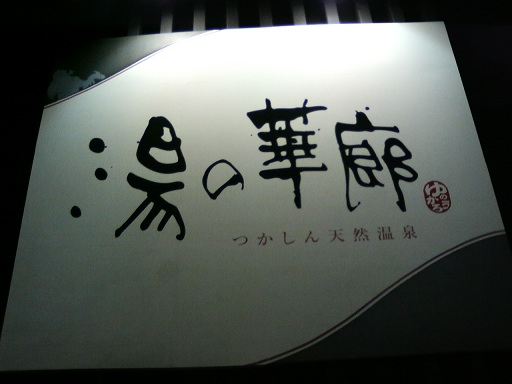 湯の華廊
つかしん天然温泉